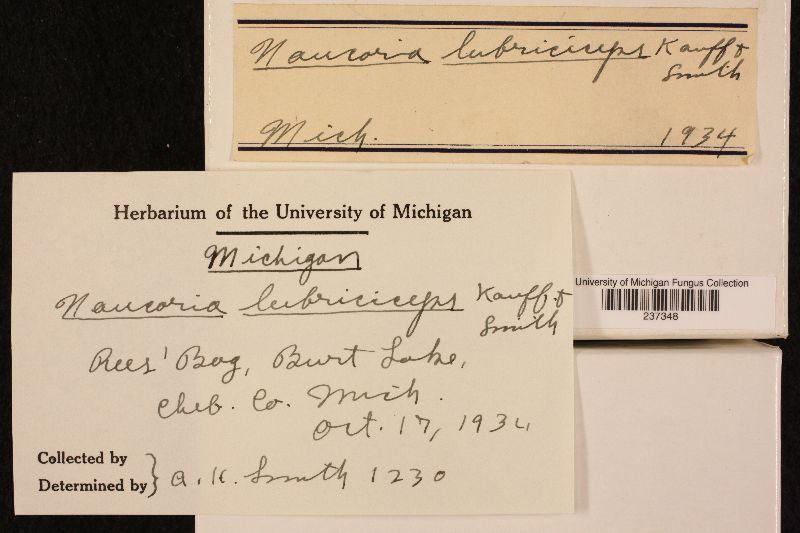 Naucoria lubriciceps Kauff &
Smith
Mich. 1934
Herbarium of the University of Michigan
Michigan
Naucoria lubriciceps Kauff &
Smith
Rees' Bog, Burt Lake,
Cheb. Co. Mich.
Oct. 17, 1934
Collected by
Determined by } A. H. Smith 1230
University of Michigan Fungus Collection
237348